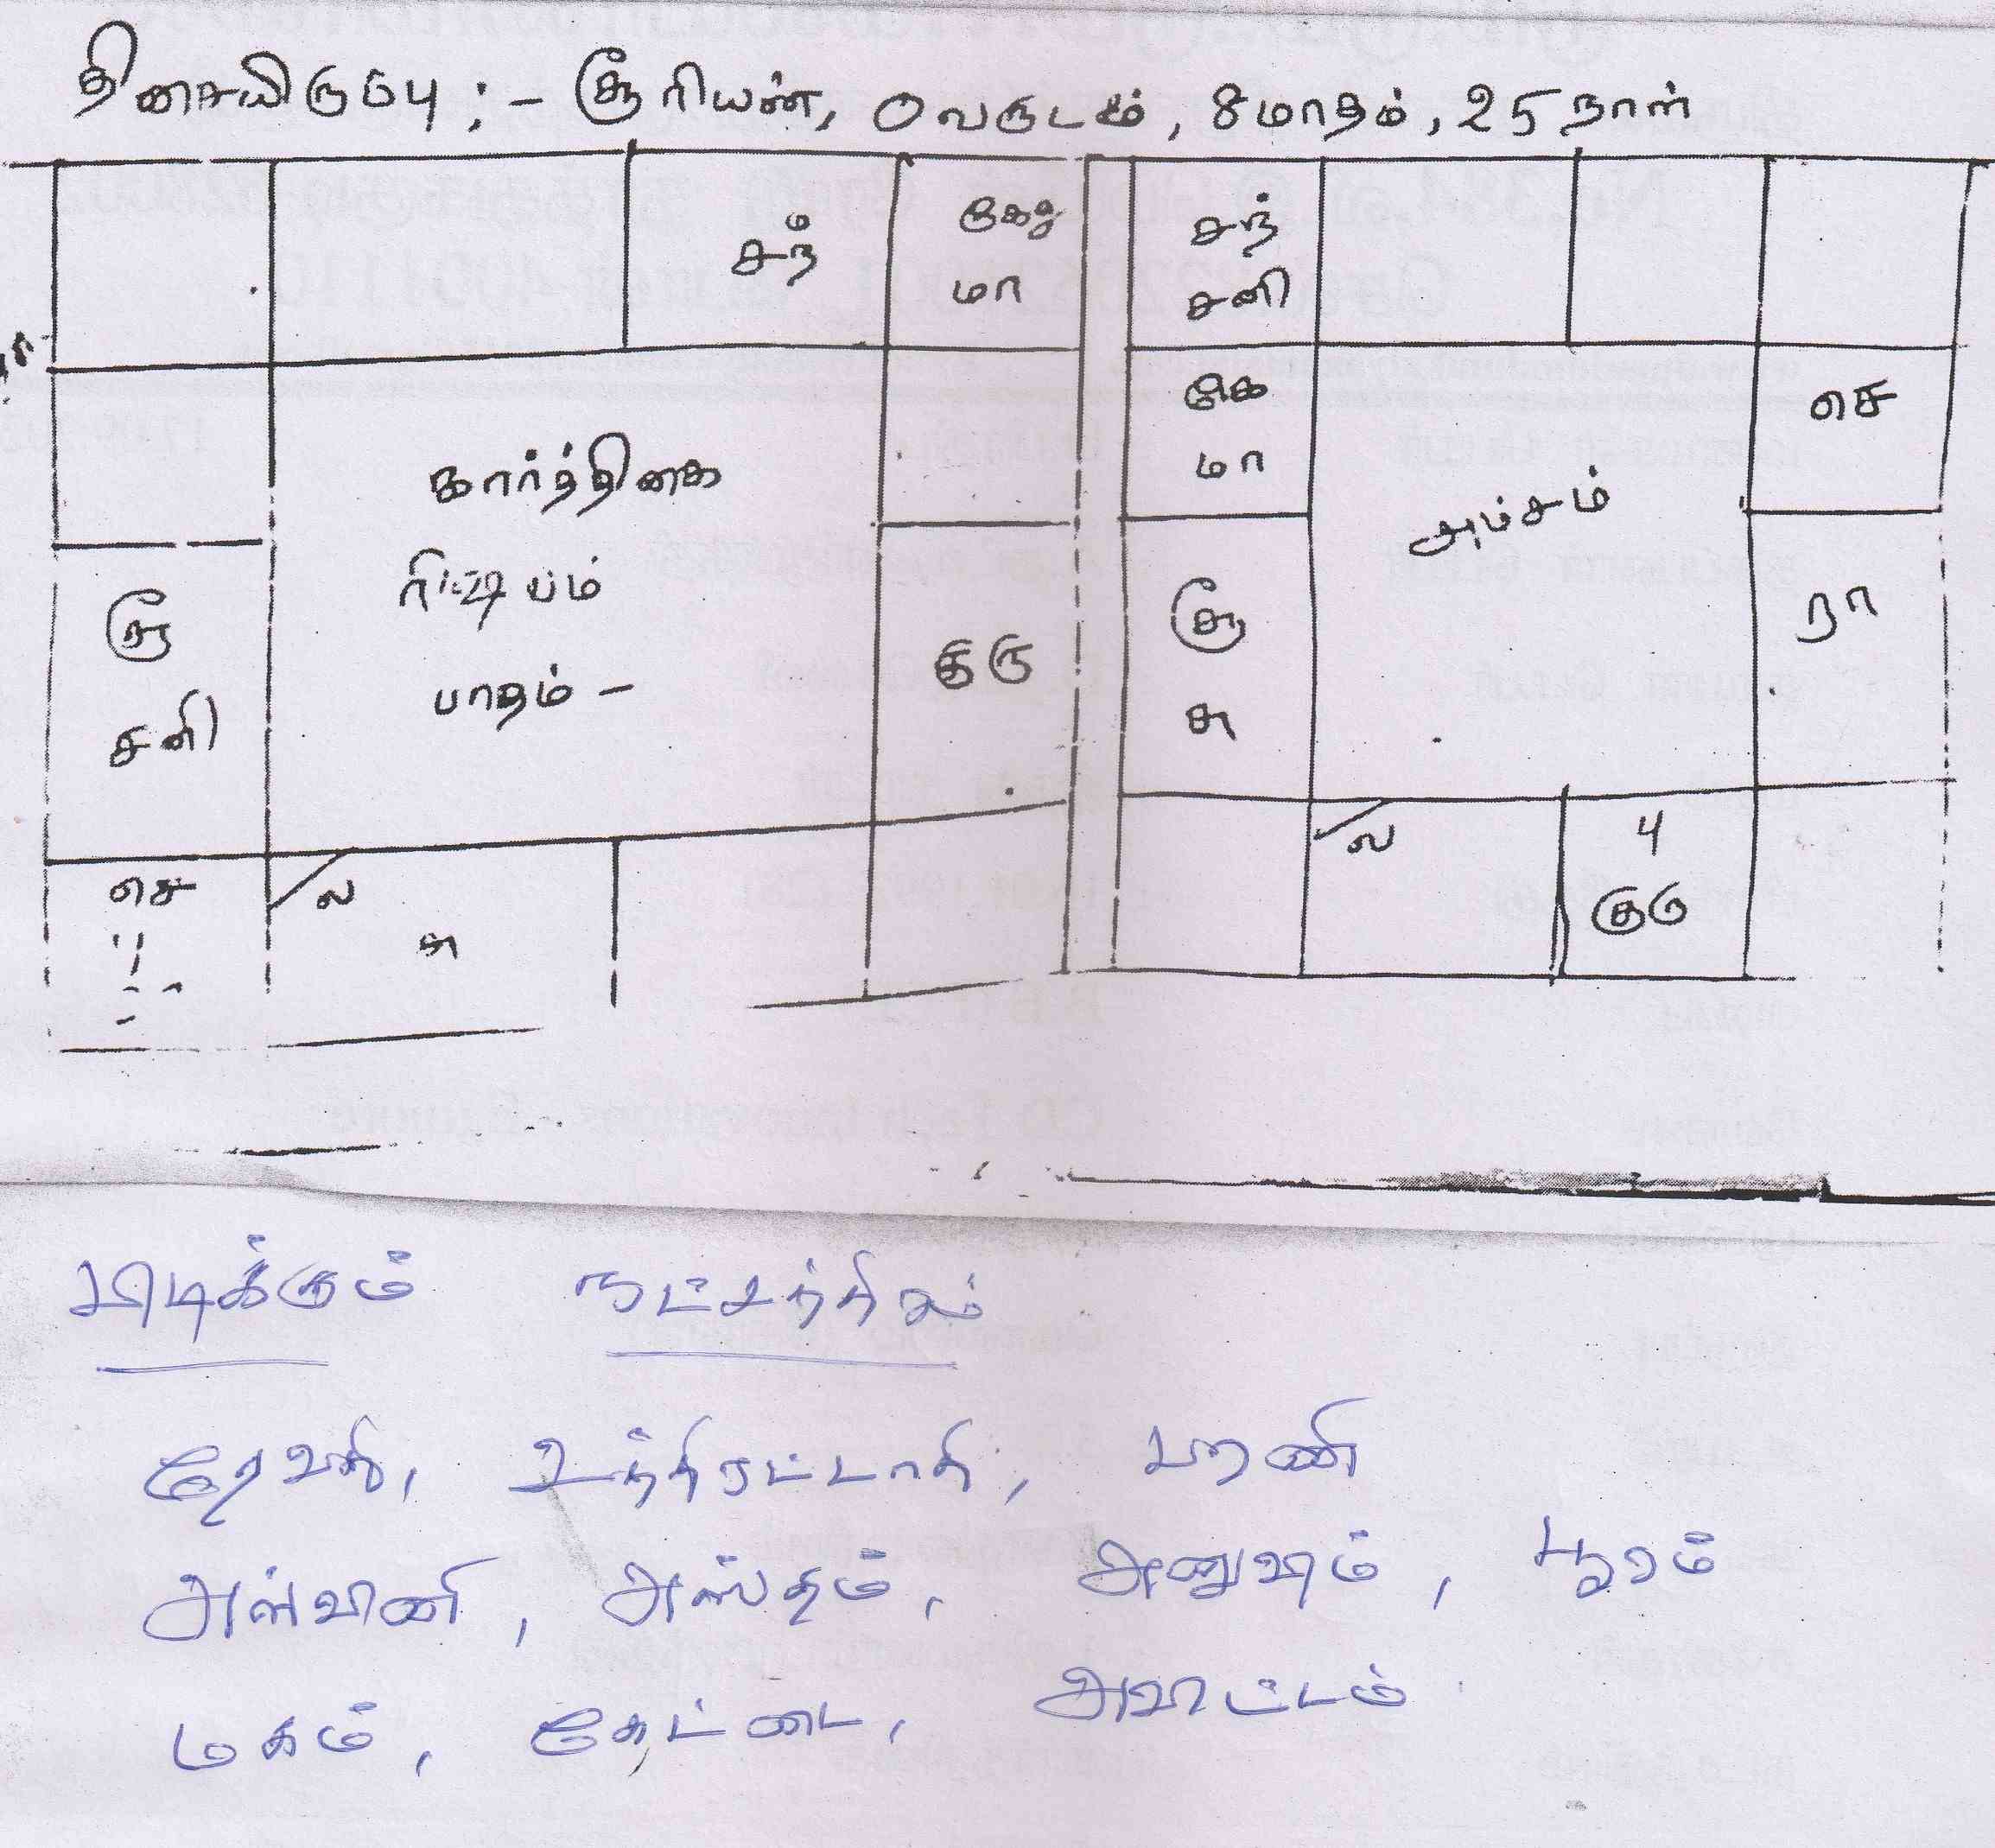 திசையிருப்பு :- சூரியன், 0 வருடம், 8 மாதம், 25 நாள்
சந்
கேது
மா
சூ
சனி
கார்த்திகை
ரிட்டியம்
பாதம் -
குரு
செ
ல
சு
சந்
சனி
கே
மா
சூ
சு
அம்சம்
செ
ரா
ல
பு
குரு
பிடிக்கும் நட்சத்திரம்
ரேவதி, உத்திரட்டாதி, பரணி
அஸ்வினி, அஸ்தம், அனுஷம், பூரம்
மகம், கேட்டை, அவிட்டம்